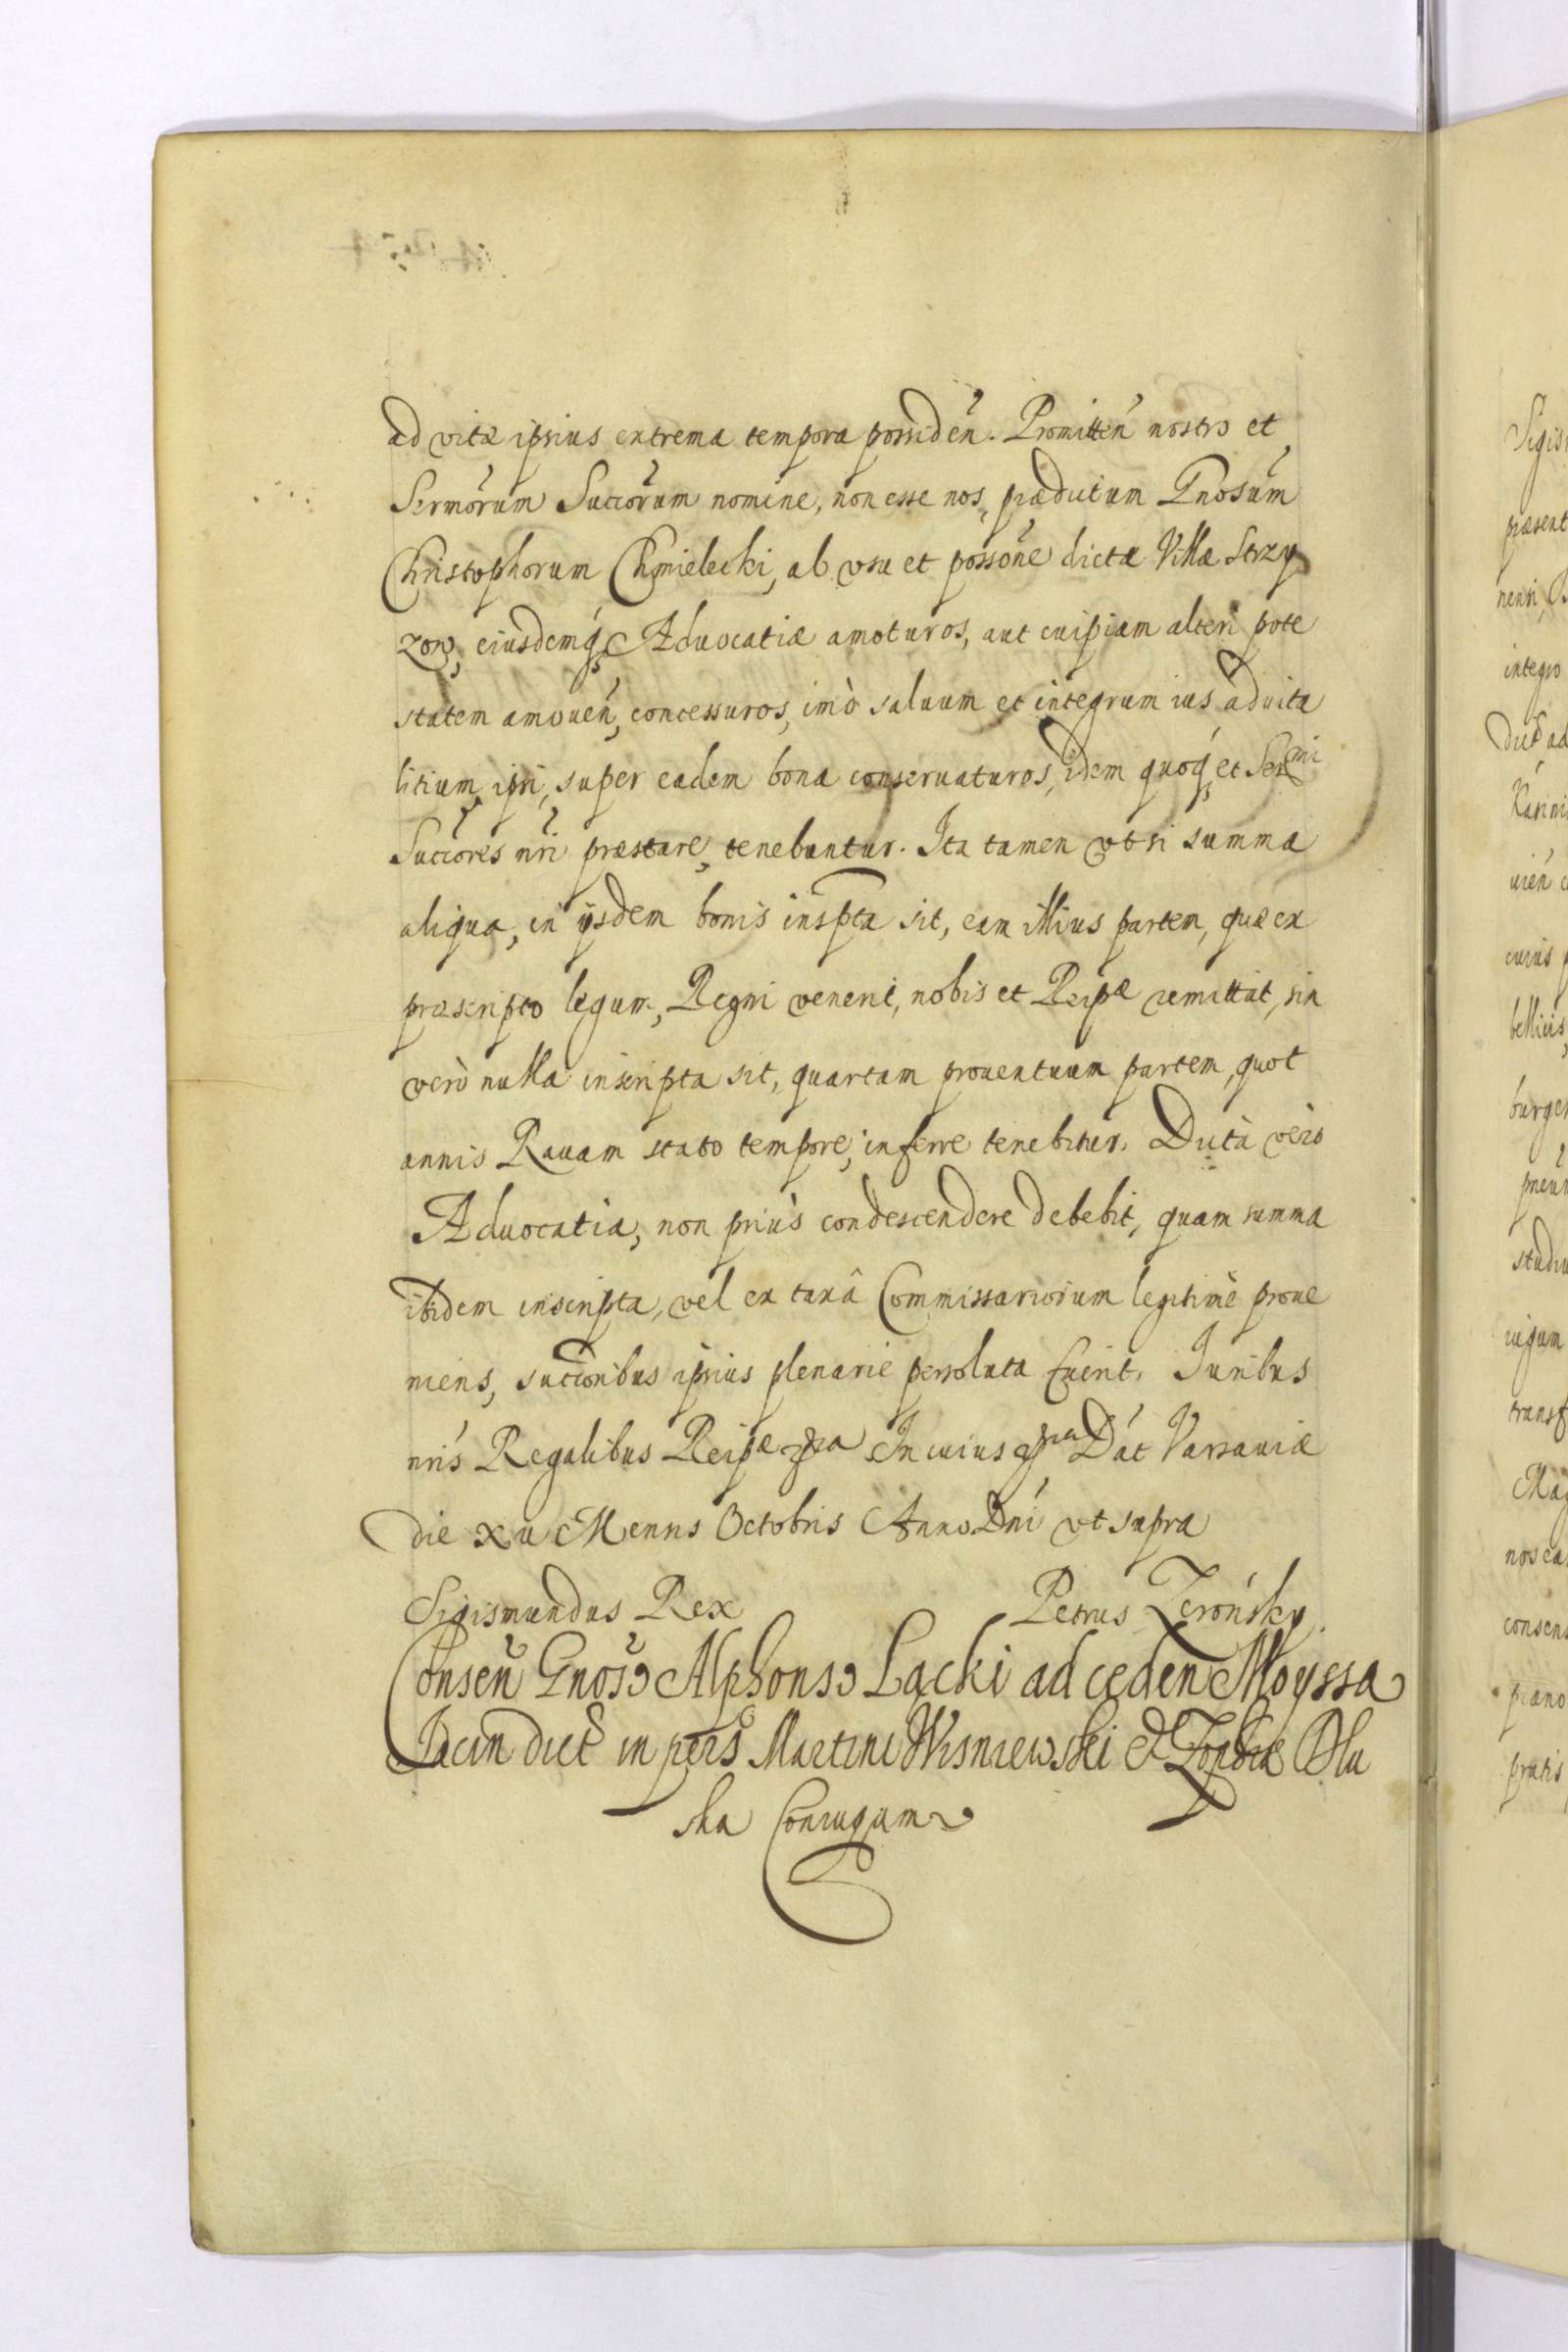 ad vitæ ipsius extrema tempora possideñ. Promitteñ nostro et
Sermõrum Succõrum nomine, non esse nos, prædictum Gnosũm
Christophorum Chmielecki, ab vsu et possõne dictæ Villæ Strzy
zow, eiusdemq́, Aduocatiæ amoturos, aut cuipiam alteri pote
statem amouẽn, concessuros, imò saluum et integrum ius aduita
litium, ipsi, super eadem bona conseruaturos, idem quoq́, et Sermi
Succõres nri præstare, tenebuntur. Ita tamen vt si summa
aliqua, in ijsdem bonis inspta sit, eam illius partem, quæ ex
præscripto legum, Regni venerit, nobis et Reipæ remittat, sin
verò nulla inscripta sit, quartam prouentuum partem, quot
annis Rauam stato tempore, inferre tenebitur. Dictà verò
Aduocatia, non priùs condescendere debebit, quam summa
ibidem inscripta, vel ex taxâ Commissariorum legitimè proue
niens, succoribus ipsius plenarie persoluta fuerit. Iuribus
nris Regalibus Reipæ In cuius Dat Varsauiæ
die xv Mensis Octobris Anno Dni vt supra
Sigismundus Rex Petrus Zeroński
Conseñ Gnoso Alphonso Lącki ad cedeñ Moyssa
Iacin dict in pers Martini Wisniewski et Zophiæ Dlu
ska Coniugum